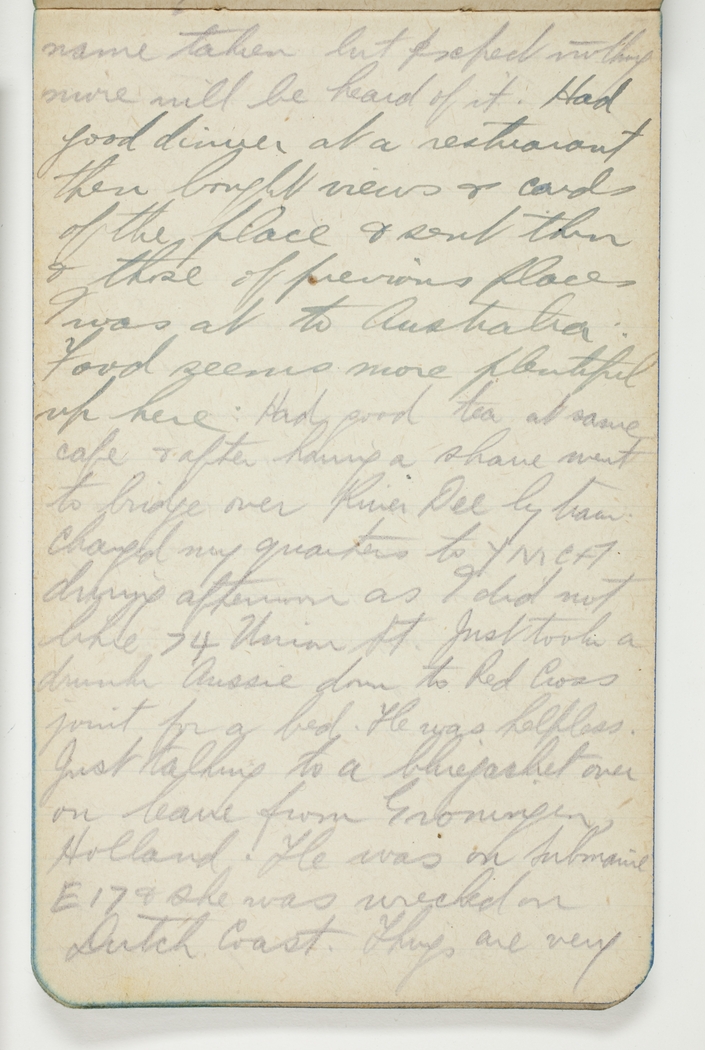 name taken but expect nothing
more will be heard of it. Had
good dinner at a restuarant
then bought views & cards
of the place & sent them
& those of previous places
I was at to Australia.
Food seems more plentiful
up here. Had good tea at same
cafe & after having a shave went
to bridge over River Dee by tram.
Changed my quarters to YMCA
during afternoon as I did not
like 74 Union St. Just took a
drunk Aussie down to Red Cross
joint for a bed. He was helpless.
Just talking to a bluejacket over
on leave from Groningen,
Holland. He was on Submarine
E17 & she was wrecked on
Dutch Coast. Things are very